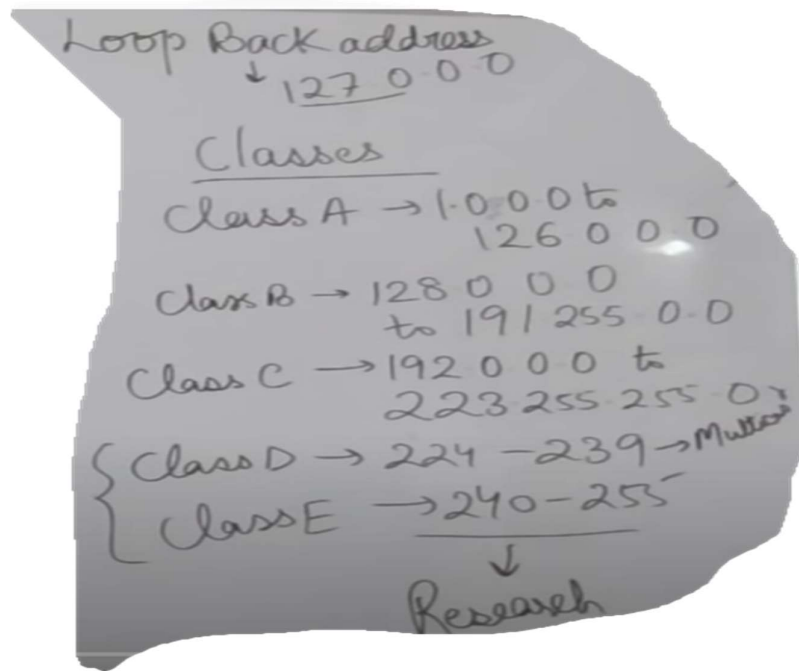 Loop Back address
↓ 127 0·0·0
Classes
Class A → 1·0·0·0 to
126 0 0 0
Class B → 128 0 0 0
to 191 255 0·0
Class C → 192 0 0 0 to
223·255·255·0
Class D → 224 - 239 →
Class E → 240 - 255
↓
Research